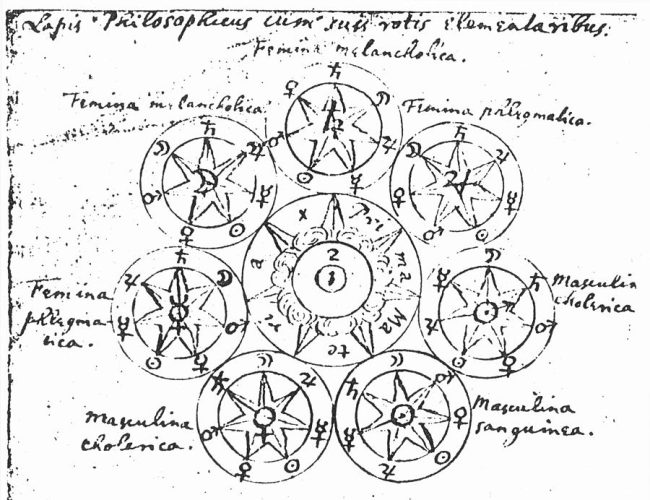 Lapis Philosophicus cum suis rotis Elementaribus.
Femina melancholica.
Femina melancholica
Femina phlegmatica.
Prima Mate ri a
2
Femina
phlegma-
tica.
Masculin
cholerica
Masculina
cholerica.
Masculina
sanguinea.